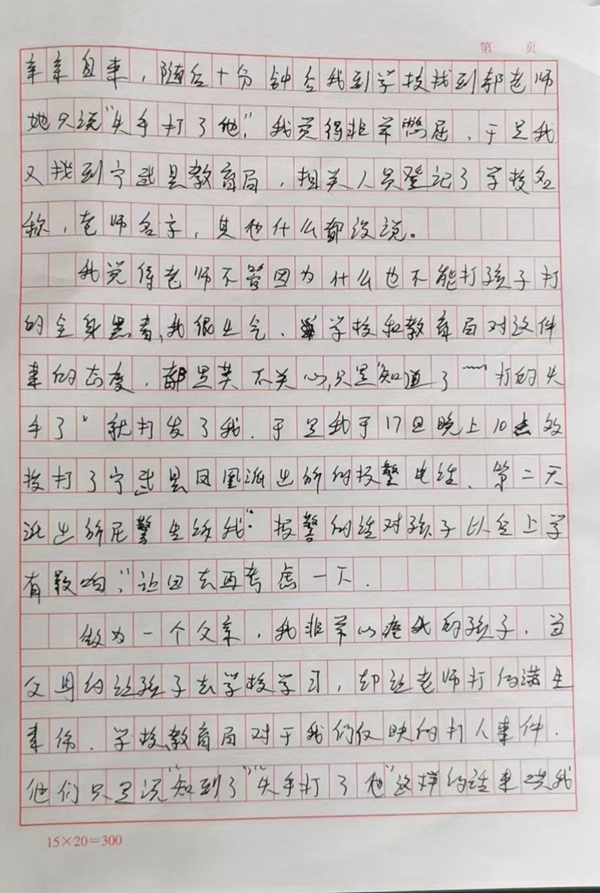 第 页
辛辛自来，随后十分钟右我到学校找到郝老师
她只说"失手打了他"，我觉得非常憋屈，于是我
又找到宁武县教育局，相关人员登记了学校名
称，老师名字，其他什么都没说。
我觉得老师不管因为什么也不能打孩子打
的全身黑青，我很生气，学校和教育局对这件
事的态度，都是莫不关心，只是"知道了""打的失
手了"就打发了我，于是我于17日晚上10点
拨打了宁武县凤凰派出所的报警电话，第二天
派出所民警告诉我"报警的话对孩子以后上学
有影响"，让回去再考虑一下。
做为一个父亲，我非常心疼我的孩子，当
父母的让孩子去学校学习，却让老师打的满生
事伤，学校，教育局对于我们仅映的打人事件，
他们只是说"知到了""失手打了他"这样的话来哄我
15×20=300